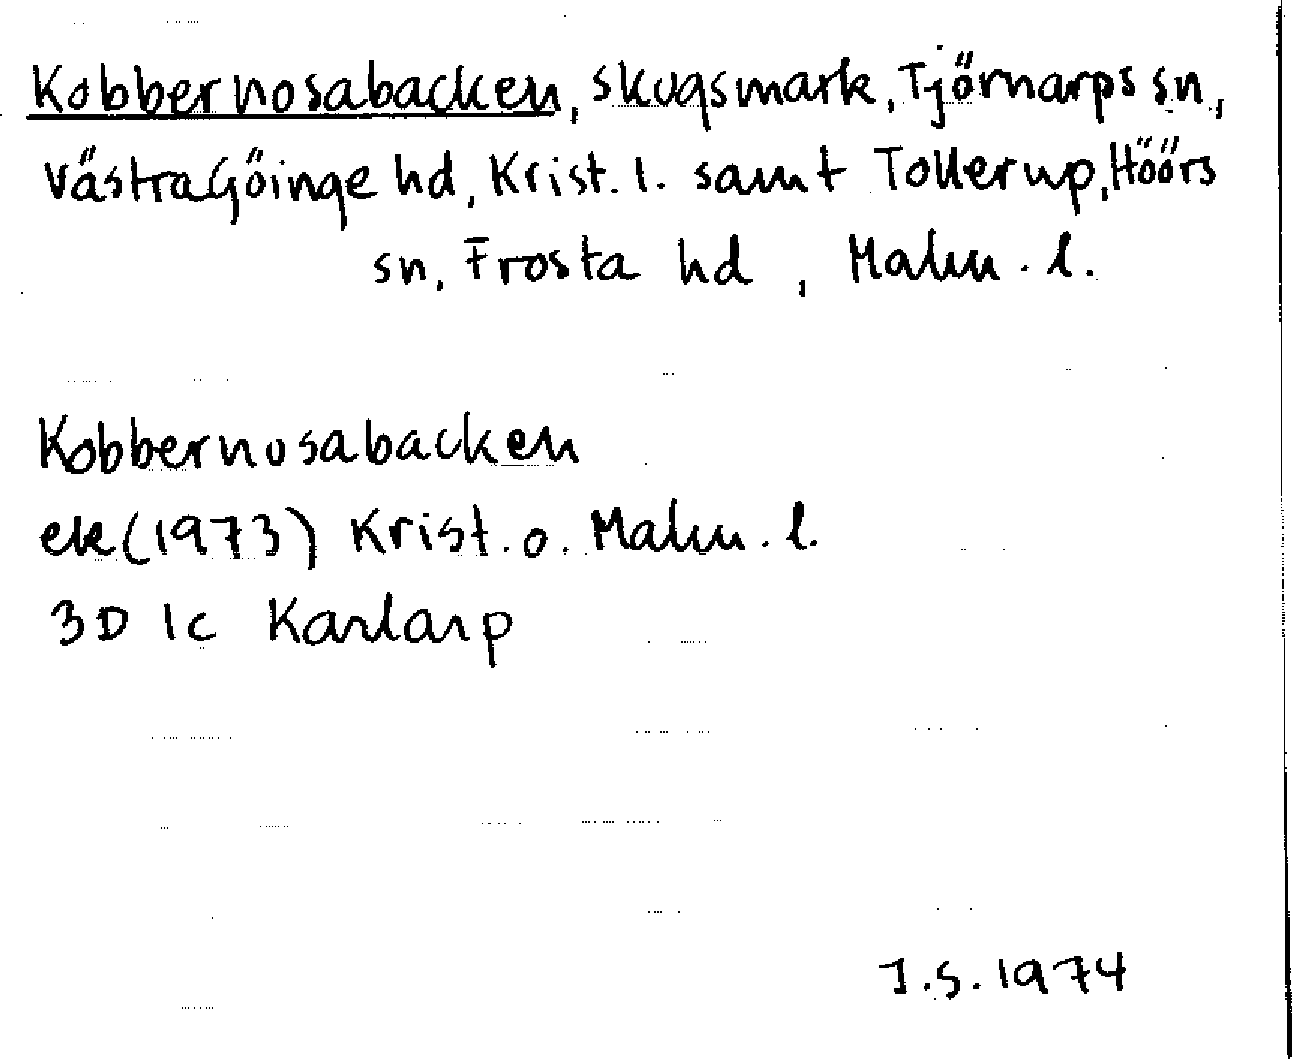 Kobbernosabacken, skogsmark, Tjörnarps sn,
Västra Göinge hd, Krist. l. samt Tollerup, Höörs
sn, Frosta hd, Malm. l.
Kobbernosabacken
ek (1973) Krist. o. Malm. l.
3D 1c Karlarp
I.S. 1974